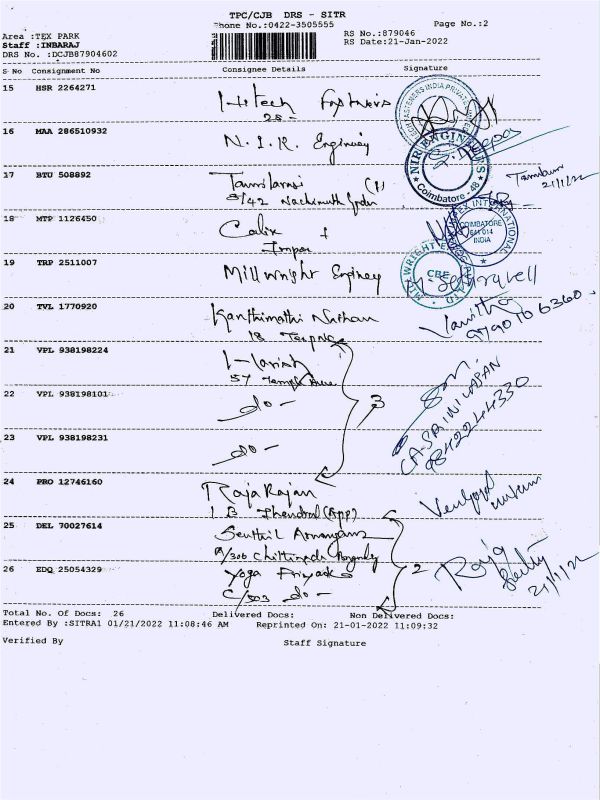 TPC/CJB DRS - SITR
Phone No.:0422-3505555 Page No.:2
RS No.:879046
Area :TEX PARK RS Date:21-Jan-2022
Staff :INBARAJ
DRS No. :DCJB87904602
S No Consignment No Consignee Details Signature
15 HSR 2264271 Hitech Fastners
28 -
16 MAA 286510932 N.I.R. Enginey
NIR ENGINEERS
Coimbatore - 48
17 BTU 508892 (1)
8/42
21/1/22
18 MTP 1126450 Calix
Impex
INTERNATIONAL
COIMBATORE
641 014
INDIA
19 TRP 2511007 Millwright Enginey
CBE
20 TVL 1770920 Kanthimathi Nathan
18
Vanitha
9790106360
21 VPL 938198224 Harish
57 Temple
22 VPL 938198101 do -
3
23 VPL 938198231 do -
CA. SRINIVASAN
9842244330
24 PRO 12746160 Raja Rajan
1 B Thendral (App)
25 DEL 70027614 Senthil
A/306
2
26 EDQ 25054329 Yoga Priyada
C/503 do -
Raja
21/1/22
Total No. Of Docs: 26 Delivered Docs: Non Delivered Docs:
Entered By :SITRA1 01/21/2022 11:08:46 AM Reprinted On: 21-01-2022 11:09:32
Verified By Staff Signature